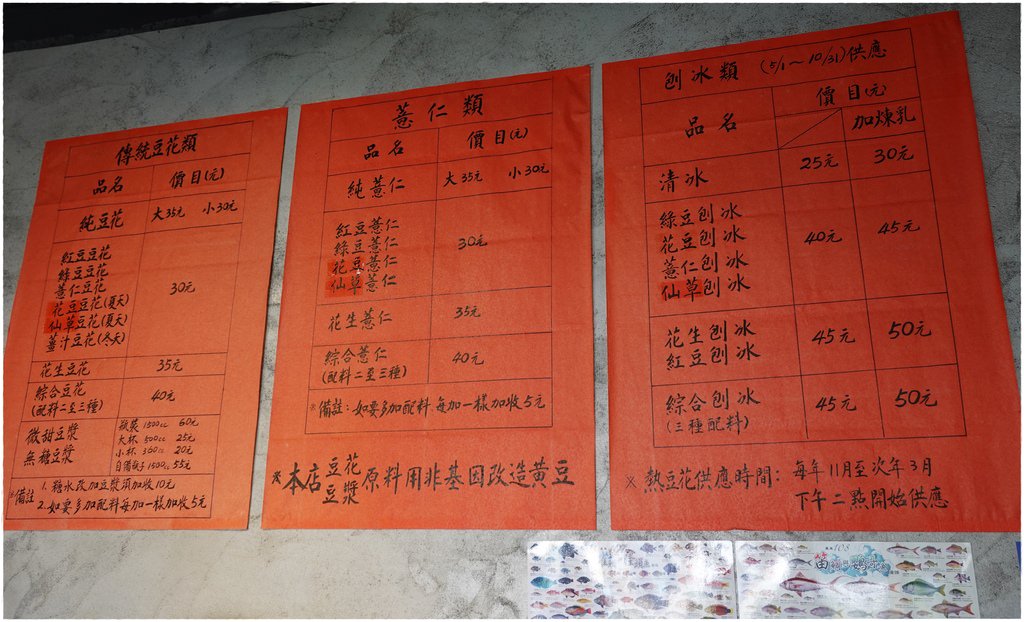 傳統豆花類
品名 價目(元)
純豆花 大35元 小30元
紅豆豆花
綠豆豆花
薏仁豆花
花豆豆花(夏天)
仙草豆花(夏天)
薑汁豆花(冬天)
30元
花生豆花 35元
綜合豆花
(配料二至三種)
40元
微甜豆漿
無糖豆漿
瓶裝1500cc 60元
大杯500cc 25元
小杯360cc 20元
自備瓶子1500cc 55元
※備註 1. 糖水改加豆漿須加收10元
2. 如要多加配料每加一樣加收5元
薏仁類
品名 價目(元)
純薏仁 大35元 小30元
紅豆薏仁
綠豆薏仁
花豆薏仁
仙草薏仁
30元
花生薏仁 35元
綜合薏仁
(配料二至三種)
40元
※備註:如要多加配料每加一樣加收5元
※本店豆花豆漿原料用非基因改造黃豆
刨冰類 (5/1~10/31)供應
品名 價目(元)
加煉乳
清冰 25元 30元
綠豆刨冰
花豆刨冰
薏仁刨冰
仙草刨冰
40元 45元
花生刨冰
紅豆刨冰
45元 50元
綜合刨冰
(三種配料)
45元 50元
※熱豆花供應時間: 每年11月至次年3月
下午二點開始供應